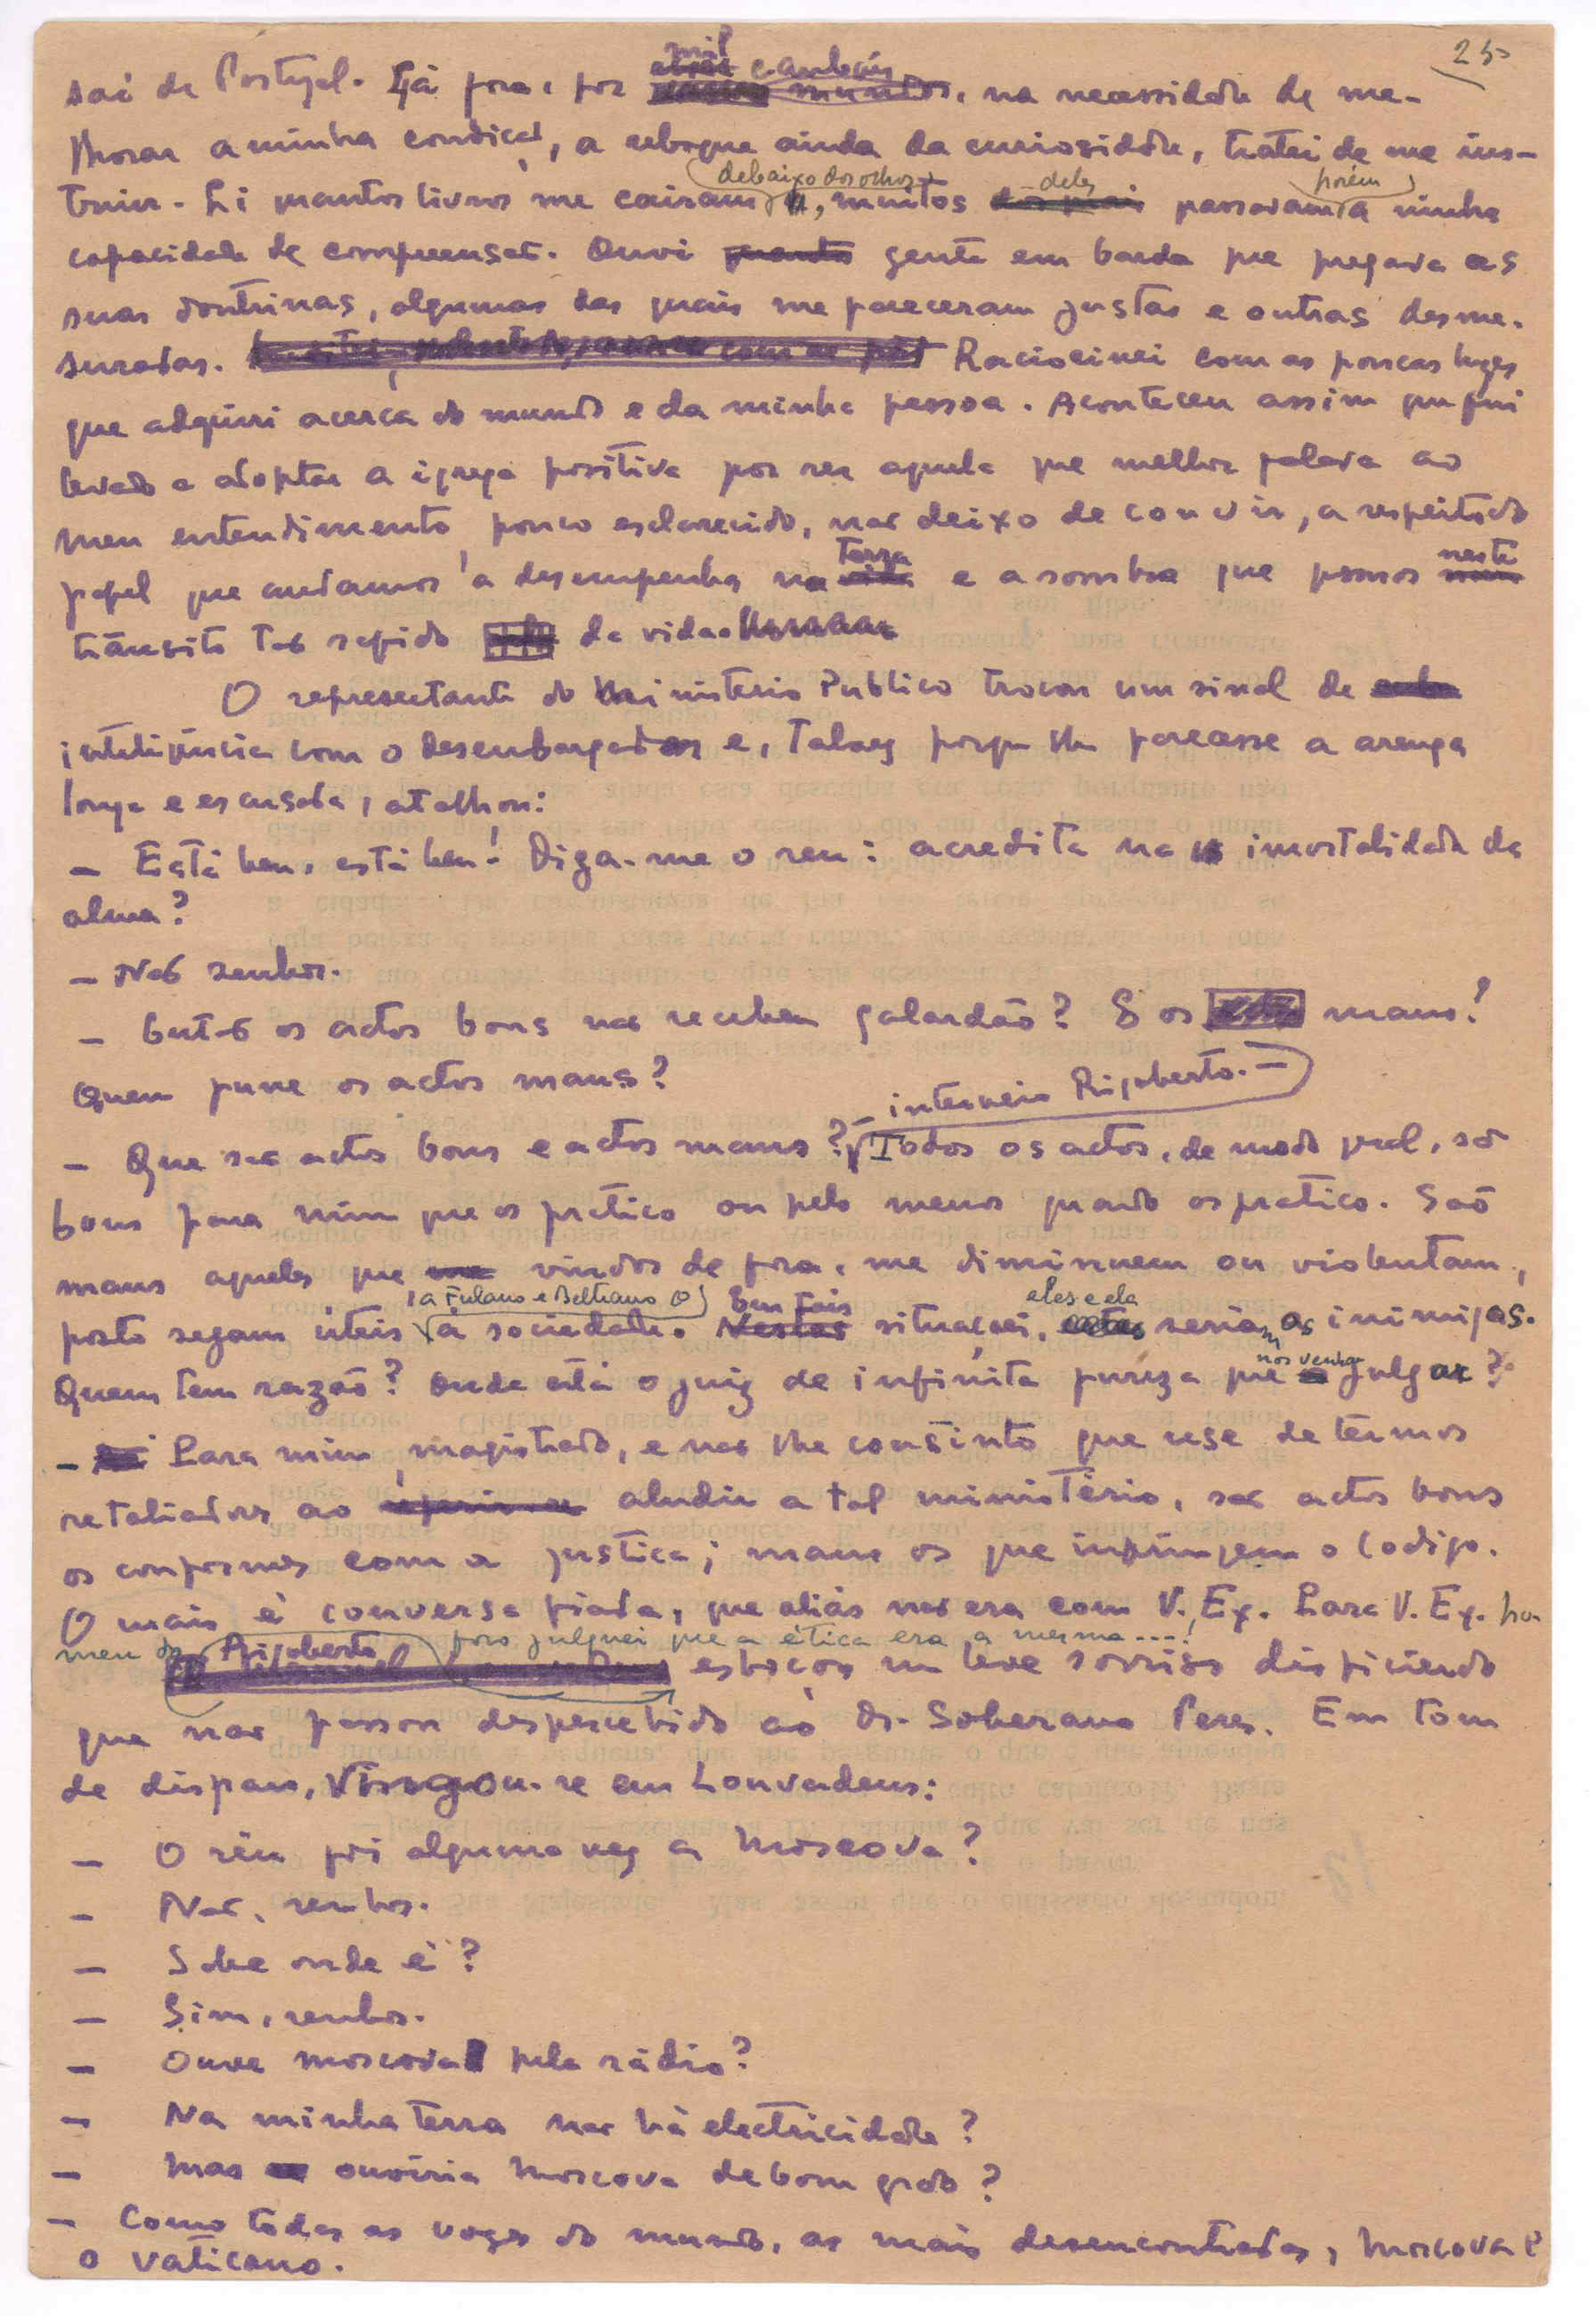 25
saí de Portugal. Lá fora, por mil cambaus, na necessidade de me-
lhorar a minha condição, a reboque ainda da curiosidade, tratei de me ins-
truir. Li quantos livros me caíram debaixo dos olhos, muitos deles passavam porém a minha
capacidade de compreensão. Ouvi gente em barda que pregava as
suas doutrinas, algumas das quais me pareceram justas e outras desme-
suradas. Raciocinei com as poucas luzes
que adquiri acerca do mundo e da minha pessoa. Aconteceu assim que fui
levado a adoptar a igreja positiva por ser aquela que melhor falava ao
meu entendimento, pouco esclarecido, não deixo de convir, a respeito do
papel que andamos a desempenhar na Terra e a sombra que somos neste
trânsito tão rápido da vida.
O representante do Ministério Publico trocou um sinal de
inteligência com o desembargador e, talvez porque lhe parecesse a arenga
longa e escusada, atalhou:
— Está bem, está bem! Diga-me o reu: acredita na imortalidade da
alma?
— Não senhor.
— Então os actos bons não recebem galardão? E os maus?
Quem pune os actos maus?
— Que são actos bons e actos maus? — interveio Rigoberto. — Todos os actos, de modo geral, são
bons para mim que os pratico ou pelo menos quando os pratico. São
maus aqueles que vindos de fora, me diminuem ou violentam,
posto sejam úteis a Fulano e Beltrano ou à sociedade. Em tais situações, eles e ela seriam os inimigos.
Quem tem razão? Onde está o juiz de infinita pureza que nos venha julgar?
— Para mim, magistrado, e não lhe consinto que use de termos
retaliadores ao aludir a tal ministério, são actos bons
os conformes com a justiça; maus os que infringem o Codigo.
O mais é conversa fiada, que aliás não era com V. Ex. Para V. Ex. ho-
mem do foro julguei que a ética era a mesma...!
Rigoberto esboçou um leve sorriso displicente
que não passou despercebido ao Dr. Soberano Peres. Em tom
de disparo, vingou-se em Louvadeus:
— O réu foi alguma vez a Moscova?
— Não, senhor.
— Sabe onde é?
— Sim, senhor.
— Ouve Moscova pela rádio?
— Na minha terra não há electricidade?
— Mas ouviria Moscova de bom grado?
— Como todas as vozes do mundo, as mais desencontradas, Moscova e
o Vaticano.